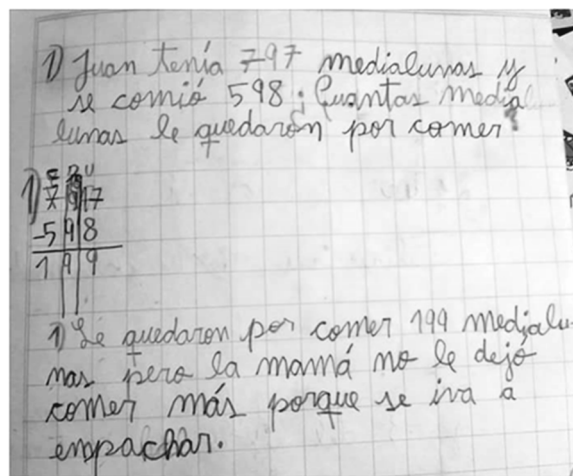 1) Juan tenía 797 medialunas y
se comió 598 ¿Cuantas media
lunas le quedarón por comer?
C D U
1) 7 9 17
-5 9 8
1 9 9
1) Le quedaron por comer 199 medialu-
nas pero la mamá no le dejó
comer más porque se iva a
empachar.